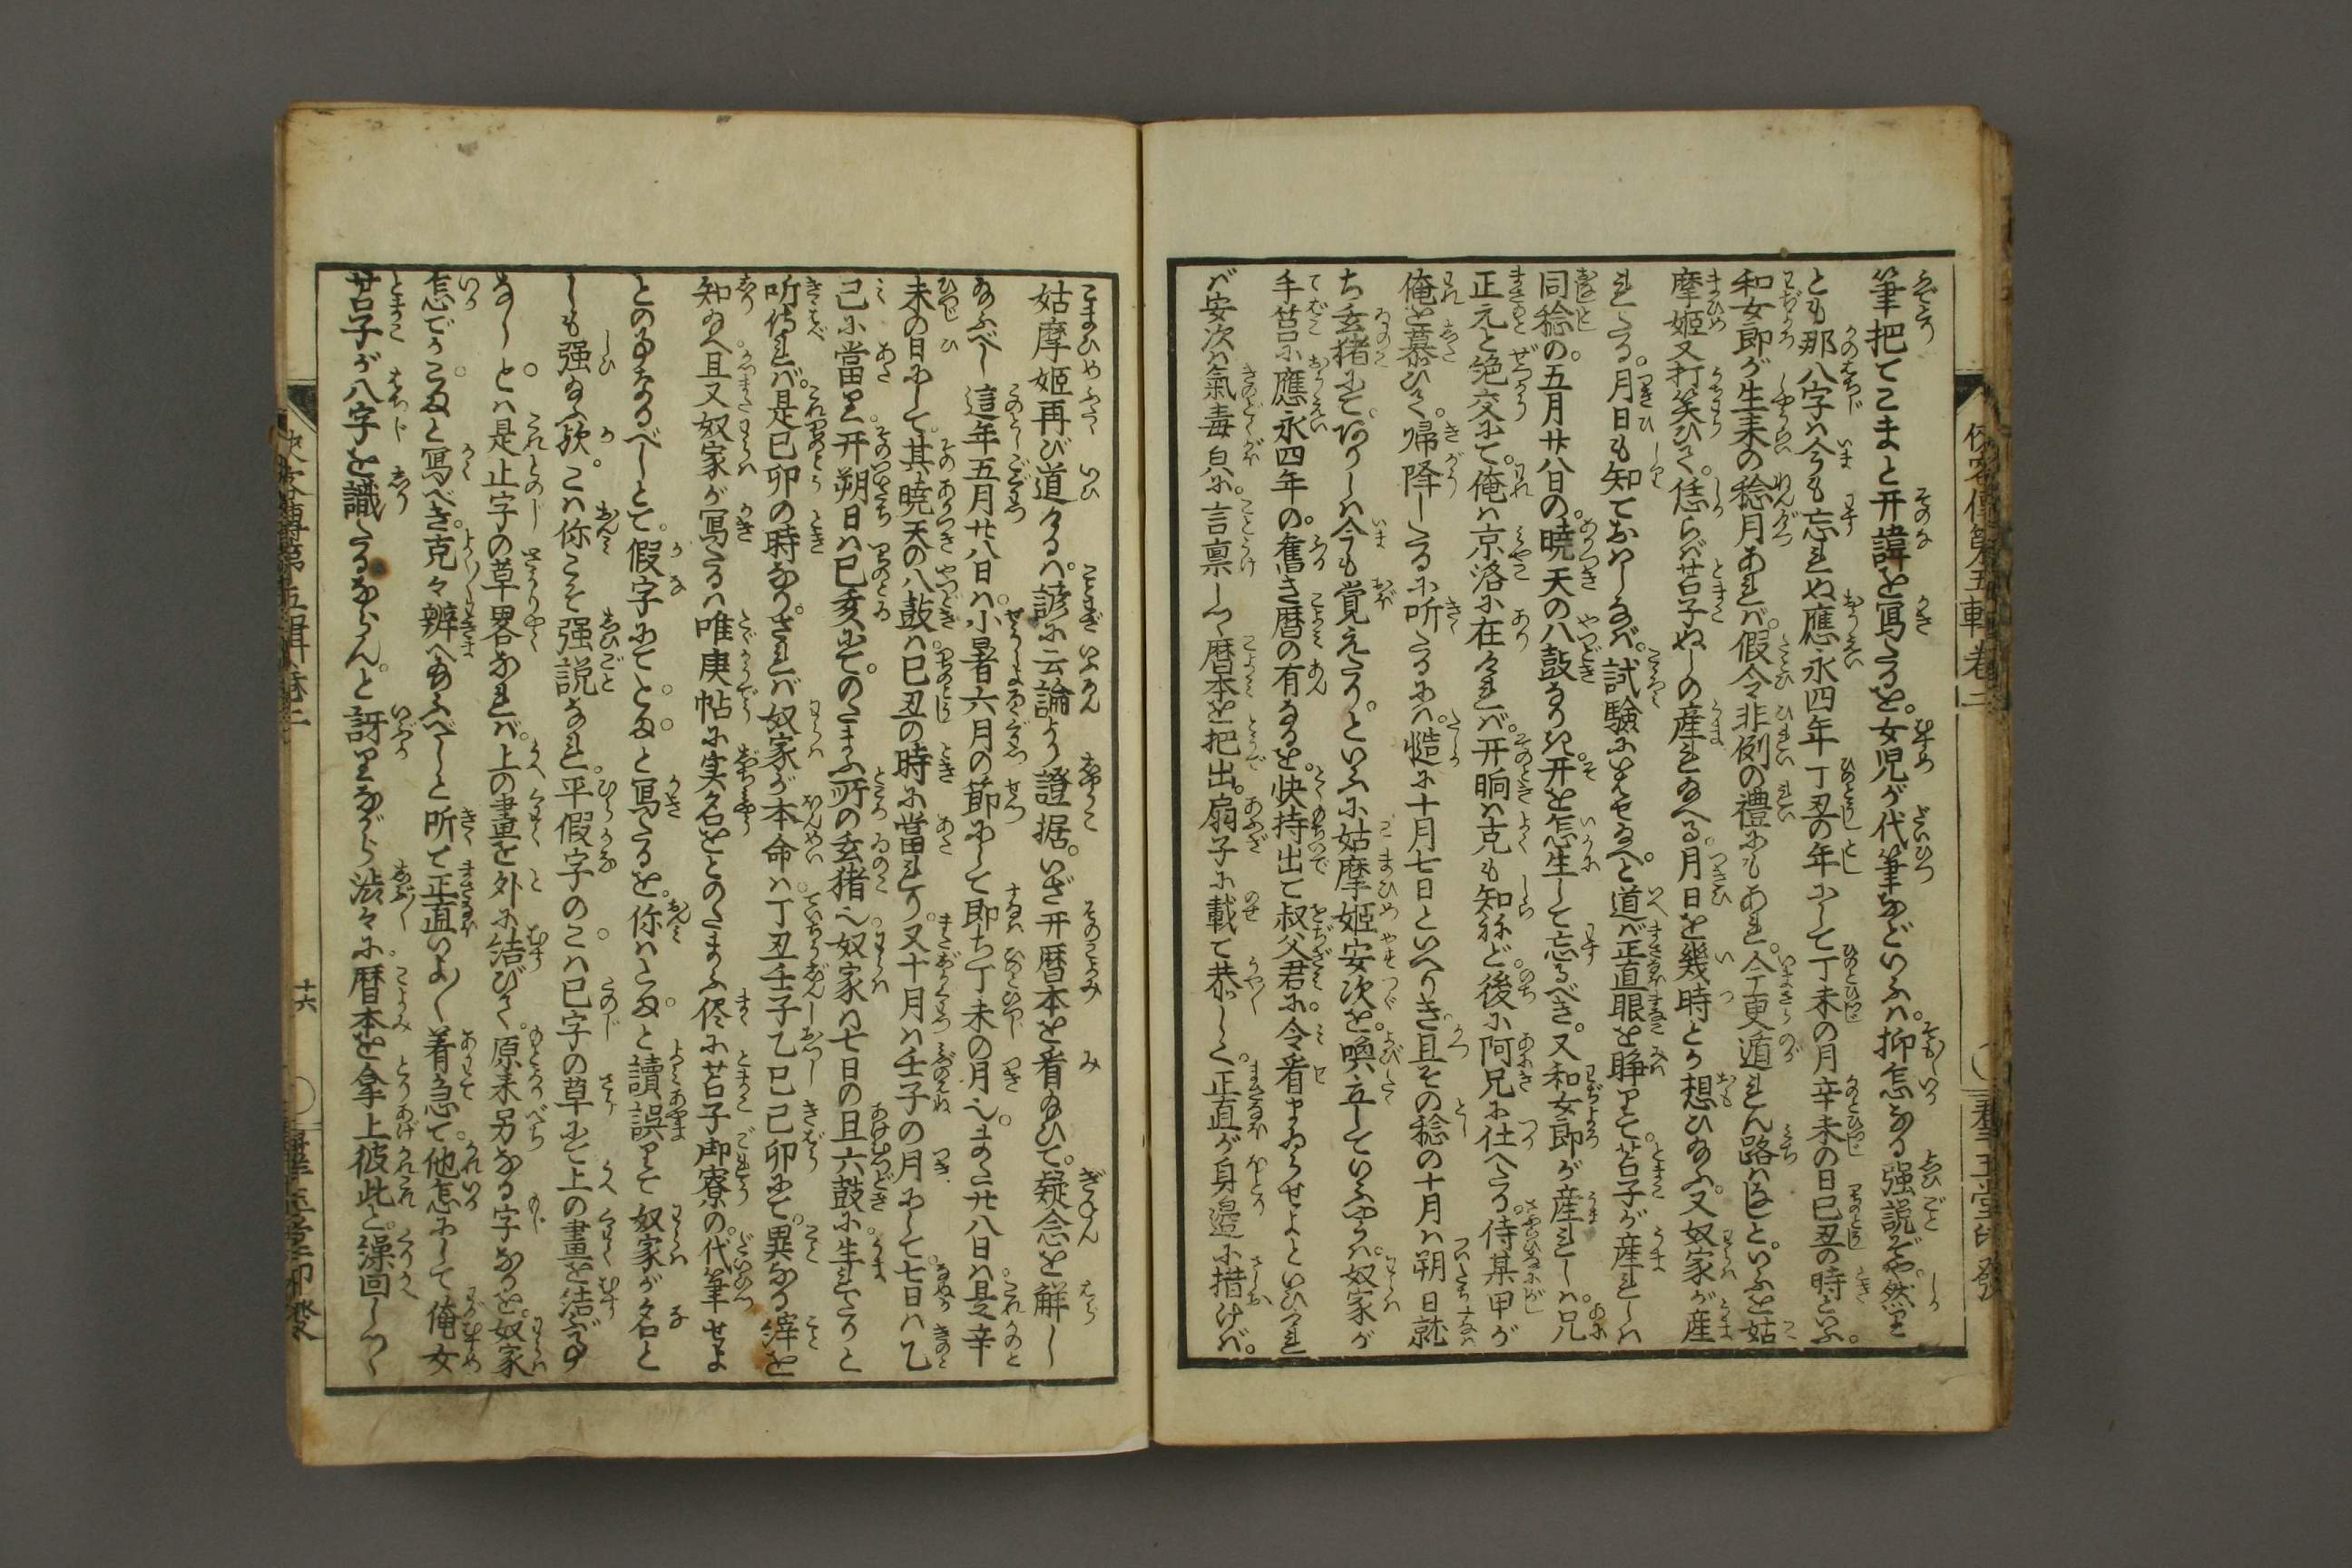 筆把てこまと开諱を寫たるを。女児が代筆などいふハ。抑怎なる强説ぞや。然ど
とも那八字ハ今も忘れぬ應永四年丁丑の年にして丁未の月辛未の日己丑の時といふ。
和女郎が生来の稔月あれバ。假令非例の禮にもあれ。今更遁れん路ハなしと。いふを姑
摩姫又打笑ひて。恁らバ苫子ぬしの産れ給へる。月日を幾時とか想ひ給ふ。又奴家が産
れたる。月日も知ておハしなバ。試驗にいはせ給へと。道バ正直眼を睜りて。苫子が産れしハ
同稔の。五月廿八日の。暁天の八鼓なりき。开を怎生して忘るべき。又和女郎が産れしハ。兄
正元と絶交にて。俺ハ京洛に在ければ。开晌ハ克も知ねど。後に阿兄に仕へたる。侍某甲が
俺を慕ひて。帰降したるに听たるに。慥に十月七日といへりき。且その稔の十月ハ朔日就
ち玄猪にて。ありしハ今も覚えたり。といふに姑摩姫安次を。喚立していふやう。奴家が
手筥に應永四年の。舊き暦の有なるを。快持出て叔父君に。令看まゐらせよといひつれ
バ安次ハ氣毒皃に。言禀しつゝ暦本を把出。扇子に載て恭しく。正直が身邉に措けバ。
姑摩姫再び道けるハ。諺に云論より證据。いざ开暦本を看給ひて。疑念を解し
給ふべし。這年五月廿八日ハ。小暑六月の節にして即ち丁未の月也。また廿八日ハ是辛
未の日にして。其暁天の八鼓ハ己丑の時に當れり。又十月ハ壬子の月にして七日ハ乙
己に當り。开朔日ハ己亥にて。のたまふ所の玄猪也。奴家ハ七日の旦六鼓に。生れたりと
听侍れバ。是己卯の時なり。されバ奴家が本命ハ。丁丑壬子乙巳己卯にて。異なる縡を
知給へ。且又奴家が寫たるハ唯庚帖に実名をとのたまふ侭に苫子御寮の。代筆せよ
とのことなるべしとて。假字にて。とまと寫たるを。你ハこまと讀誤りて奴家が名と
しも强給ふ歟。こハ你こそ强説なれ。平假字のこハ己字の草にて上の畫を結ぶ事
なし。とハ是止字の草畧なれバ。上の畫を外に結びて。原来另なる字なるを。奴家
怎でかこまと寫べき。克々辨へ給ふべしと听て正直いよ〳〵着急て。他怎にして俺女
苫子が八字を識たるならん。と訝りながら渋々に。暦本を拿上彼此と。繰回しつゝ
十六